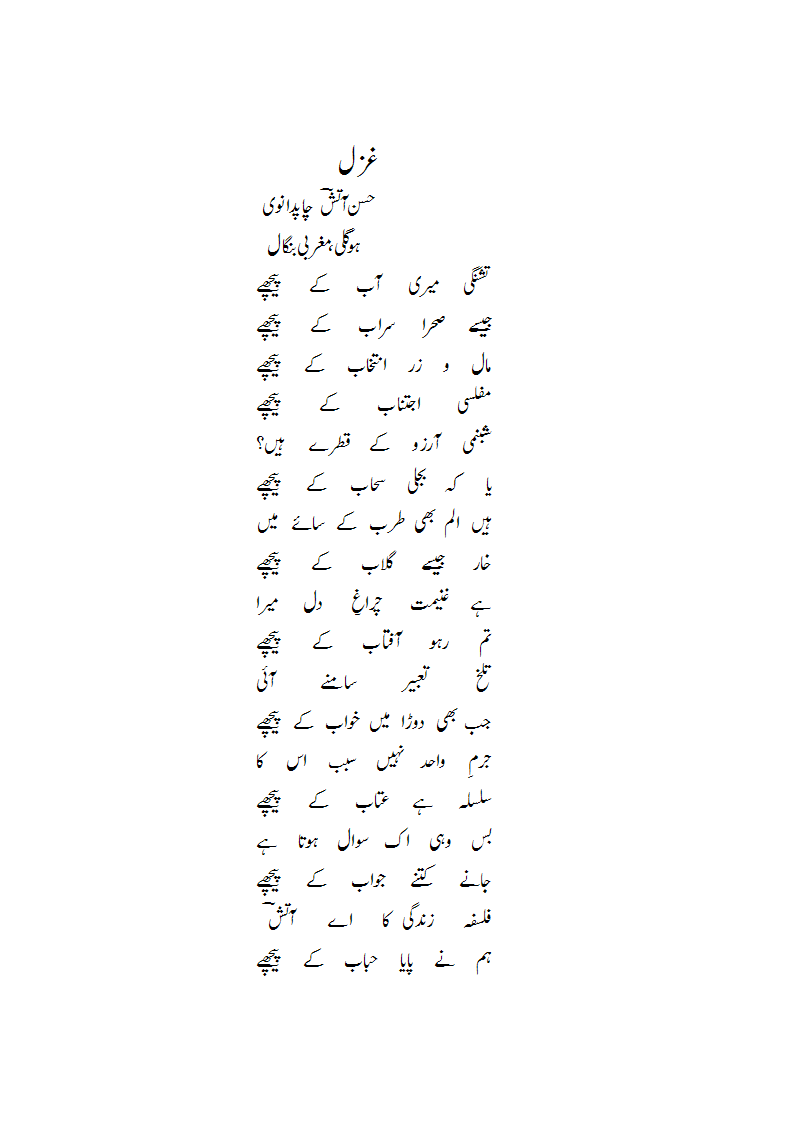 غزل
حسن آتشؔ چاپدانوی
ہوگلی، مغربی بنگال
تشنگی میری آب کے پیچھے
جیسے صحرا سراب کے پیچھے
مال و زر انتخاب کے پیچھے
مفلسی اجتناب کے پیچھے
شبنمی آرزو کے قطرے ہیں؟
یا کہ بجلی سحاب کے پیچھے
ہیں الم بھی طرب کے سائے میں
خار جیسے گلاب کے پیچھے
ہے غنیمت چراغِ دل میرا
تم رہو آفتاب کے پیچھے
تلخ تعبیر سامنے آئی
جب بھی دوڑا میں خواب کے پیچھے
جرمِ واحد نہیں سبب اس کا
سلسلہ ہے عتاب کے پیچھے
بس وہی اک سوال ہوتا ہے
جانے کتنے جواب کے پیچھے
فلسفہ زندگی کا اے آتشؔ
ہم نے پایا حباب کے پیچھے